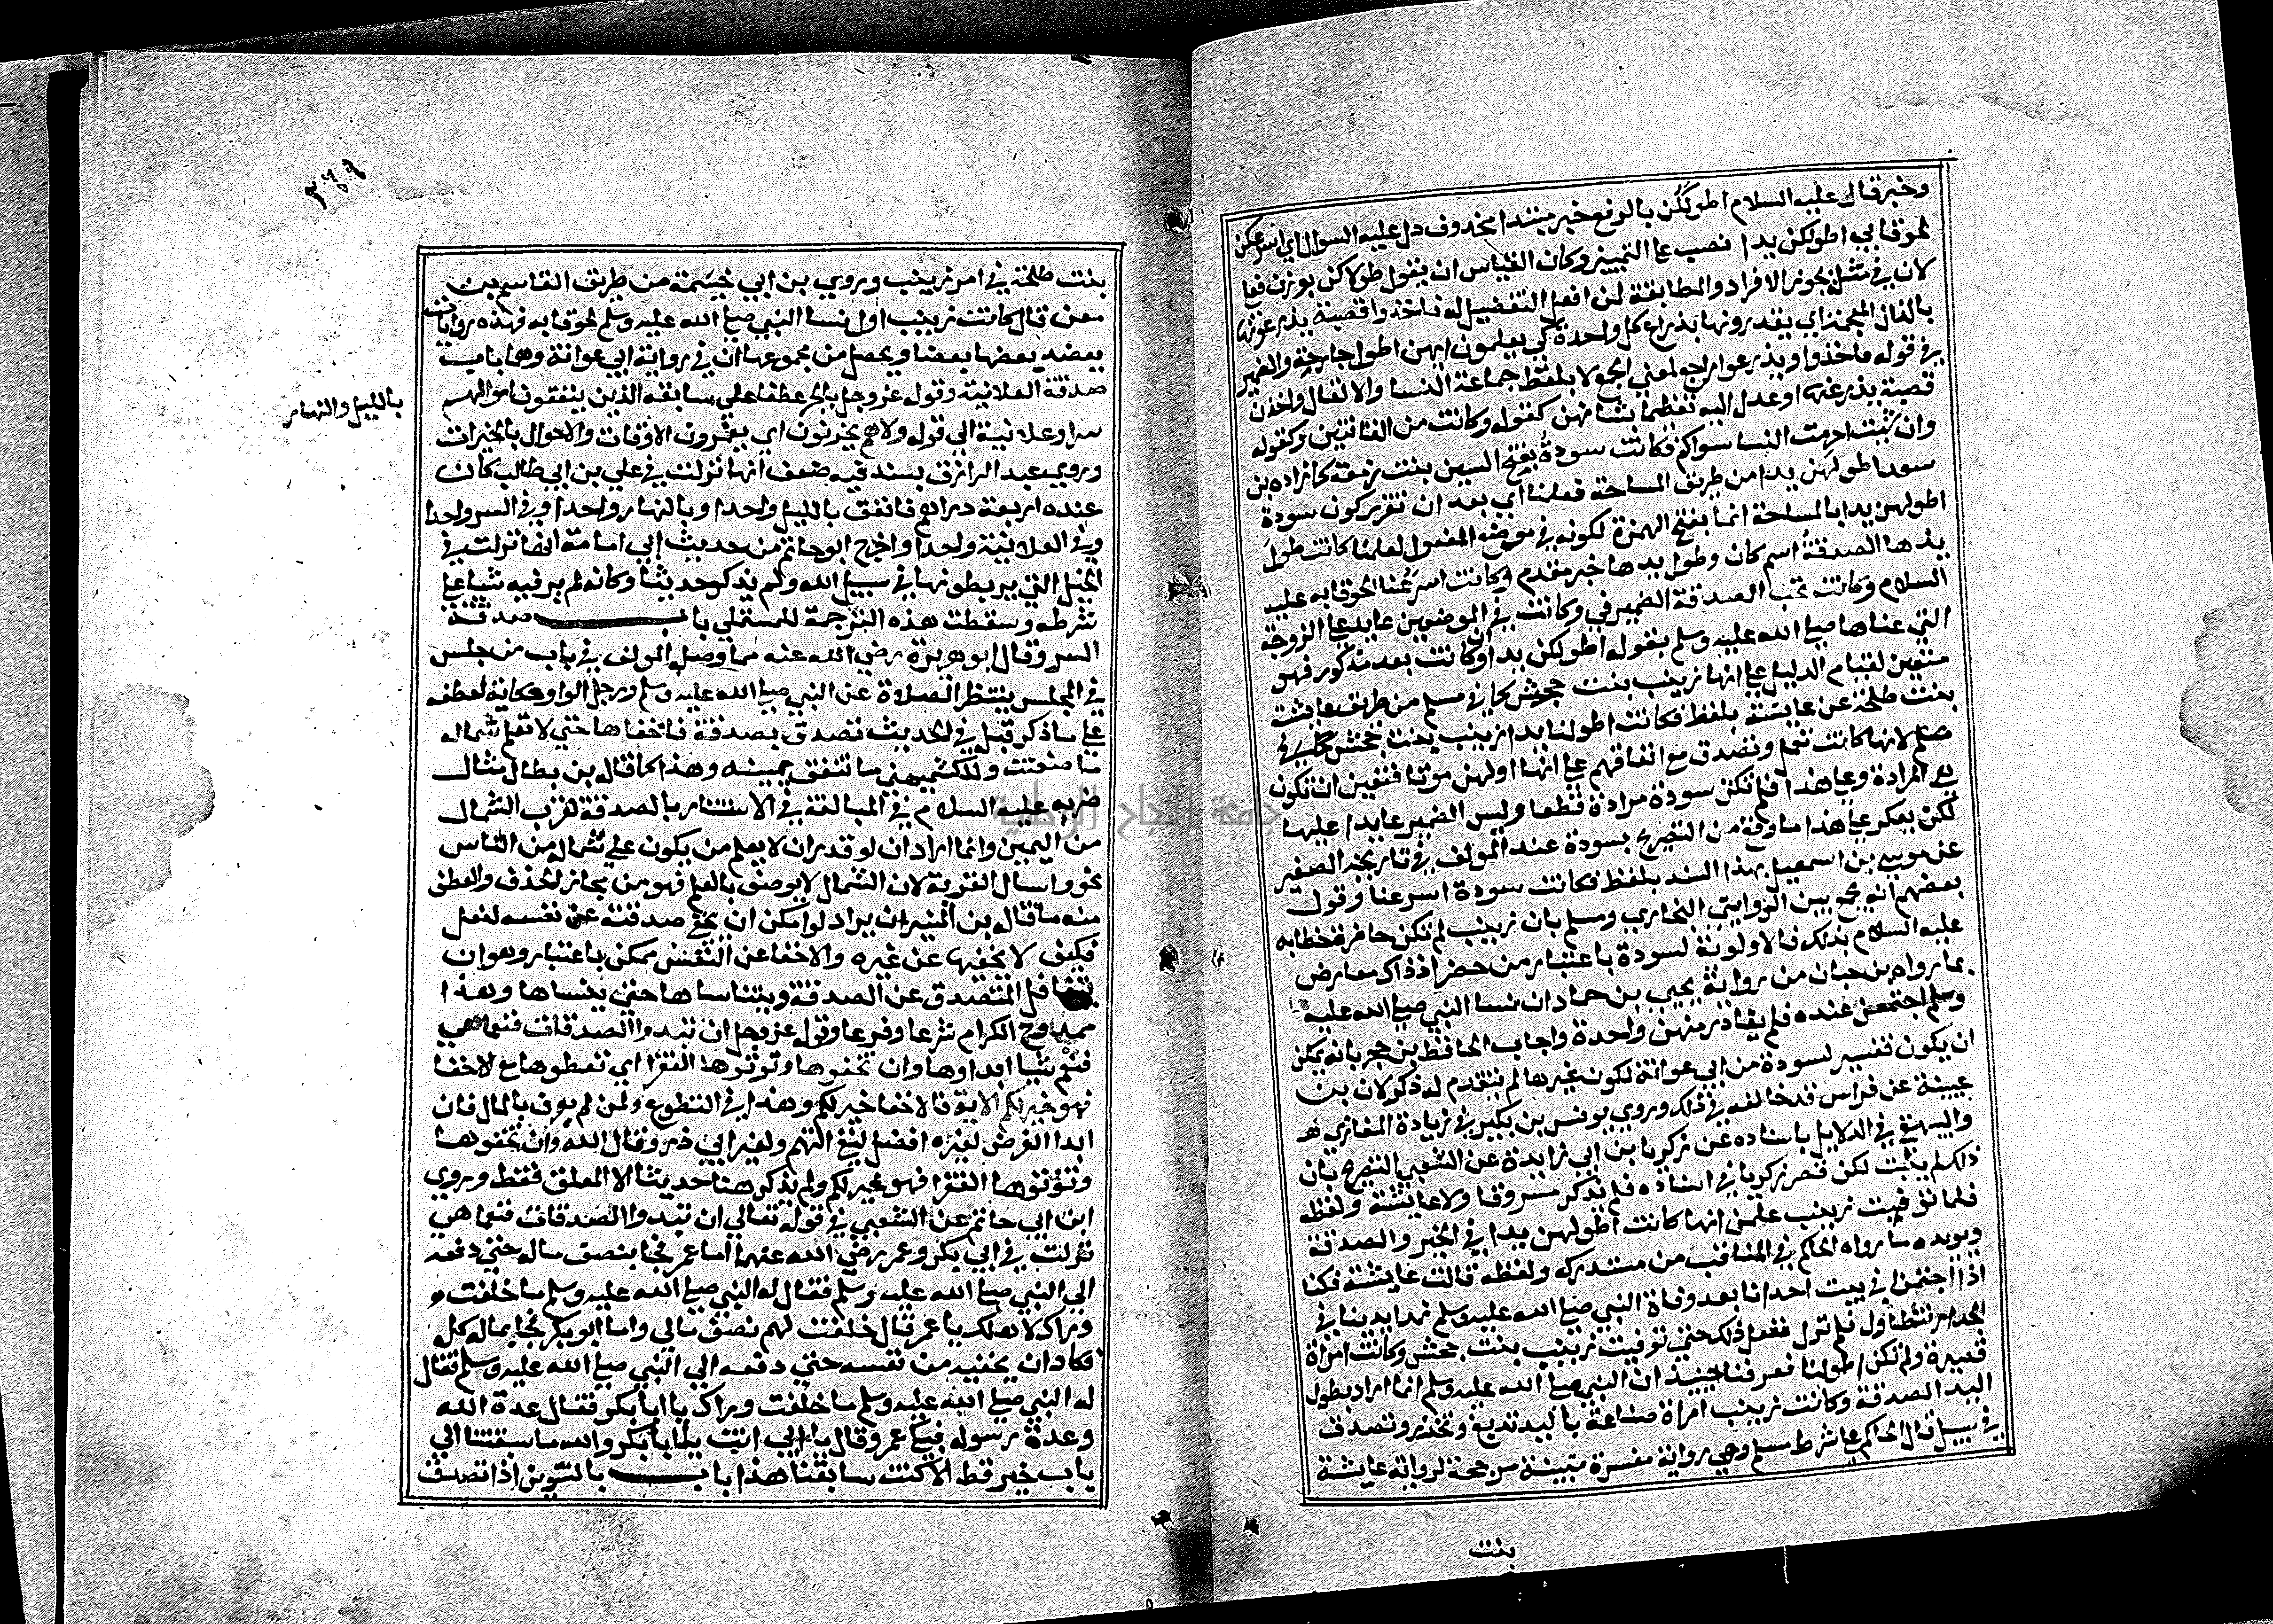 وخبر قال عليه السلام اطولكن بالرفع خبر مبتدا محذوف دل عليه السوال اي اسرعكن
لحوقا بي اطولكن يدا نصب على التمييز وكان القياس ان يقول طولاكن بوزن فعلى
لان في مثله يجوز الافراد والمطابقة لمن افعل التفضيل له فاخذوا قصبة يذرعونها
بالذال المعجمة اي يقدرونها بذراع كل واحدة كي يعلمون ايهن اطول جارحة والضمير
في قوله فاخذوا ويذرعوا راجع لمعني الجمع لا بلفظ جماعة النسا والا لقال واخذن
قصبة يذرعنها او عدل اليه تعظيما بشانهن كقوله وكانت من القانتين وكقوله
وان شيت حرمت النسا سواكم فكانت سودة بفتح السين بنت زمعة كما زاده بن
سعد اطولهن يدا من طريق المساحة فعلمنا اي بعد ان تقرر كون سودة
اطولهن يدا بالمساحة انما بفتح الهمزة لكونه في موضع المفعول لعلمنا كانت طول
يدها الصدقة اسم كان وطول يدها خبر مقدم وكانت اسرعنا لحوقا به عليه
السلام وكانت تحب الصدقة الضمير في وكانت في الموضعين عايد على الزوجة
التي عناها صلى الله عليه وسلم بقوله اطولكن يدا وان كانت بعد مذكور فهو
متعين لقيام الدليل على انها زينب بنت جحش كما في مسلم من طريق عايشة
بنت طلحة عن عايشة بلفظ فكانت اطولنا يدا زينب بنت جحش
لانها كانت تعمل وتصدق مع اتفاقهم على انها اولهن موتا فتعين ان تكون
هي المرادة وعلى هذا فلم تكن سودة مرادة قطعا وليس الضمير عايدا عليها
لكن يعكر على هذا ما وقع من التصريح بسودة عند المولف في تاريخه الصغير
عن موسى بن اسمعيل بهذا السند بلفظ فكانت سودة اسرعنا وقول
بعضهم انه يجمع بين الروايتي البخاري ومسلم بان زينب لم تكن حاضرة خطابه
عليه السلام بذلك فالاولوية لسودة باعتبار من حضر اذ ذاك معارض
بما رواه بن حبان من رواية يحيى بن حماد ان نسا النبي صلى الله عليه
وسلم اجتمعن عنده فلم يغادر منهن واحدة واجاب الحافظ بن حجر بانه يمكن
ان يكون تفسير لسودة من ابي عوانة لكون غيرها لم يتقدم له ذكر لان بن
عيينة عن فراس قد خالفه في ذلك وروي يونس بن بكير في زيادة المغازي
والبيهقي في الدلايل باسناده عن زكريا بن ابي زايدة عن الشعبي التصريح بان
ذلك لم يثبت لكن قصر زكريا في اسناده فلم يذكر مسروقا ولا عايشة ولفظه
فلما توفيت زينب علمن انها كانت اطولهن يدا في الخير والصدقة
ويويده ما رواه الحاكم في المناقب من مستدركه ولفظه قالت عايشة فكنا
اذا اجتمعنا في بيت احدانا بعد وفاة النبي صلى الله عليه وسلم نمد ايدينا في
الجدار نتطاول فلم نزل نفعل ذلك حتى توفيت زينب بنت جحش وكانت امراة
قصيرة ولم تكن اطولنا فعرفنا حينيذ ان النبي صلى الله عليه وسلم انما اراد بطول
اليد الصدقة وكانت زينب امراة صناعة باليد تدبغ وتخرز وتصدق
في سبيل قال الحاكم على شرط مسلم وهي رواية مفسرة مبينة مرجحة لرواية عايشة
بنت
٣٦٩
بنت طلحة في امر زينب وروي بن ابي خيثمة من طريق القاسم بن
معن قال كانت زينب اول نسا النبي صلى الله عليه وسلم لحوقا به فهذه روايات
يعضد بعضها بعضا ويحصل من مجموعها ان في رواية ابي عوانة وهما باب
صدقة العلانية وقوله عز وجل بالجر عطفا علي سابقه الذين ينفقون اموالهم
بالليل والنهار
سرا وعلانية الي قوله ولا هم يحزنون اي يعمرون الاوقات والاحوال بالخيرات
وروي عبد الرازق بسند فيه ضعف انها نزلت في علي بن ابي طالب كان
عنده اربعة دراهم فانفق بالليل واحدا وبالنهار واحدا وفي السر واحدا
وفي العلانية واحدا واخرج ابو حاتم من حديث ابي امامة انها نزلت في
الخيل التي يربطونها في سبيل الله ولم يذكر حديثا وكانه لم ير فيه شيا على
شرطه وسقطت هذه الترجمة للمستملي باب صدقة
السر وقال ابو هريرة رضي الله عنه مما وصله المولف في باب من جلس
في المجلس ينتظر الصلاة عن النبي صلى الله عليه وسلم ورجل الواو حكاية لعطفه
على ما ذكر قبل في الحديث تصدق بصدقة فاخفاها حتي لا تعلم شماله
ما صنعت وللكشميهني ما تنفق يمينه وهذا كما قال بن بطال مثال
ضربه عليه السلام في المبالغة في الاستتار بالصدقة لقرب الشمال
من اليمين وانما اراد ان لو قدر ان لا يعلم من يكون علي شماله من الناس
نحو واسال القرية لان الشمال لا يوصف بالعلم فهو من مجاز الحذف والطف
منه ما قال بن المنير ان يراد لو امكن ان يخفي صدقته عن نفسه لفعل
فكيف لا يخفيها عن غيره والاخفا عن النفس ممكن باعتبار وهو ان
يتغافل المتصدق عن الصدقة ويتناساها حتي ينساها وهذا
ممدوح الكرام شرعا وفرعا وقوله عز وجل ان تبدوا الصدقات فنعما هي
فنعم شيا ابداوها وان تخفوها وتوتوها الفقرا اي تعطوها مع الاخفا
فهو خير لكم الاية فالاخفا خير لكم وهذا في التطوع ولمن لم يعرف بالمال فان
ابدا الفرض لغيره افضل لنفي التهم ولغير ابي ذر وقال الله وان تخفوها
وتؤتوها الفقرا فهو خير لكم ولم يذكر هنا حديثا الا المعلق فقط وروي
ابن ابي حاتم عن الشعبي في قوله تعالي ان تبدوا الصدقات فنعما هي
نزلت في ابي بكر وعمر رضي الله عنهما اما عمر فجا بنصف ماله حتي دفعه
الي النبي صلى الله عليه وسلم فقال له النبي صلى الله عليه وسلم ما خلفت
وراك لاهلك يا عمر قال خلفت لهم نصف مالي واما ابو بكر فجا بماله كله
فكاد ان يخفيه من نفسه حتي دفعه الي النبي صلى الله عليه وسلم فقال
له النبي صلى الله عليه وسلم ما خلفت وراك يا ابا بكر فقال عدة الله
وعدة رسوله فبكا عمر وقال بابي انت يا ابا بكر والله ما سبقتنا الي
باب خير قط الا كنت سابقنا هذا باب بالتنوين اذا تصدق
جامعة النجاح الوطنية